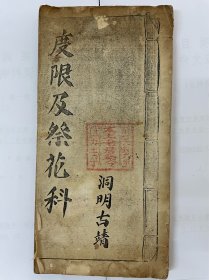 度限及祭花科
洞明古靖